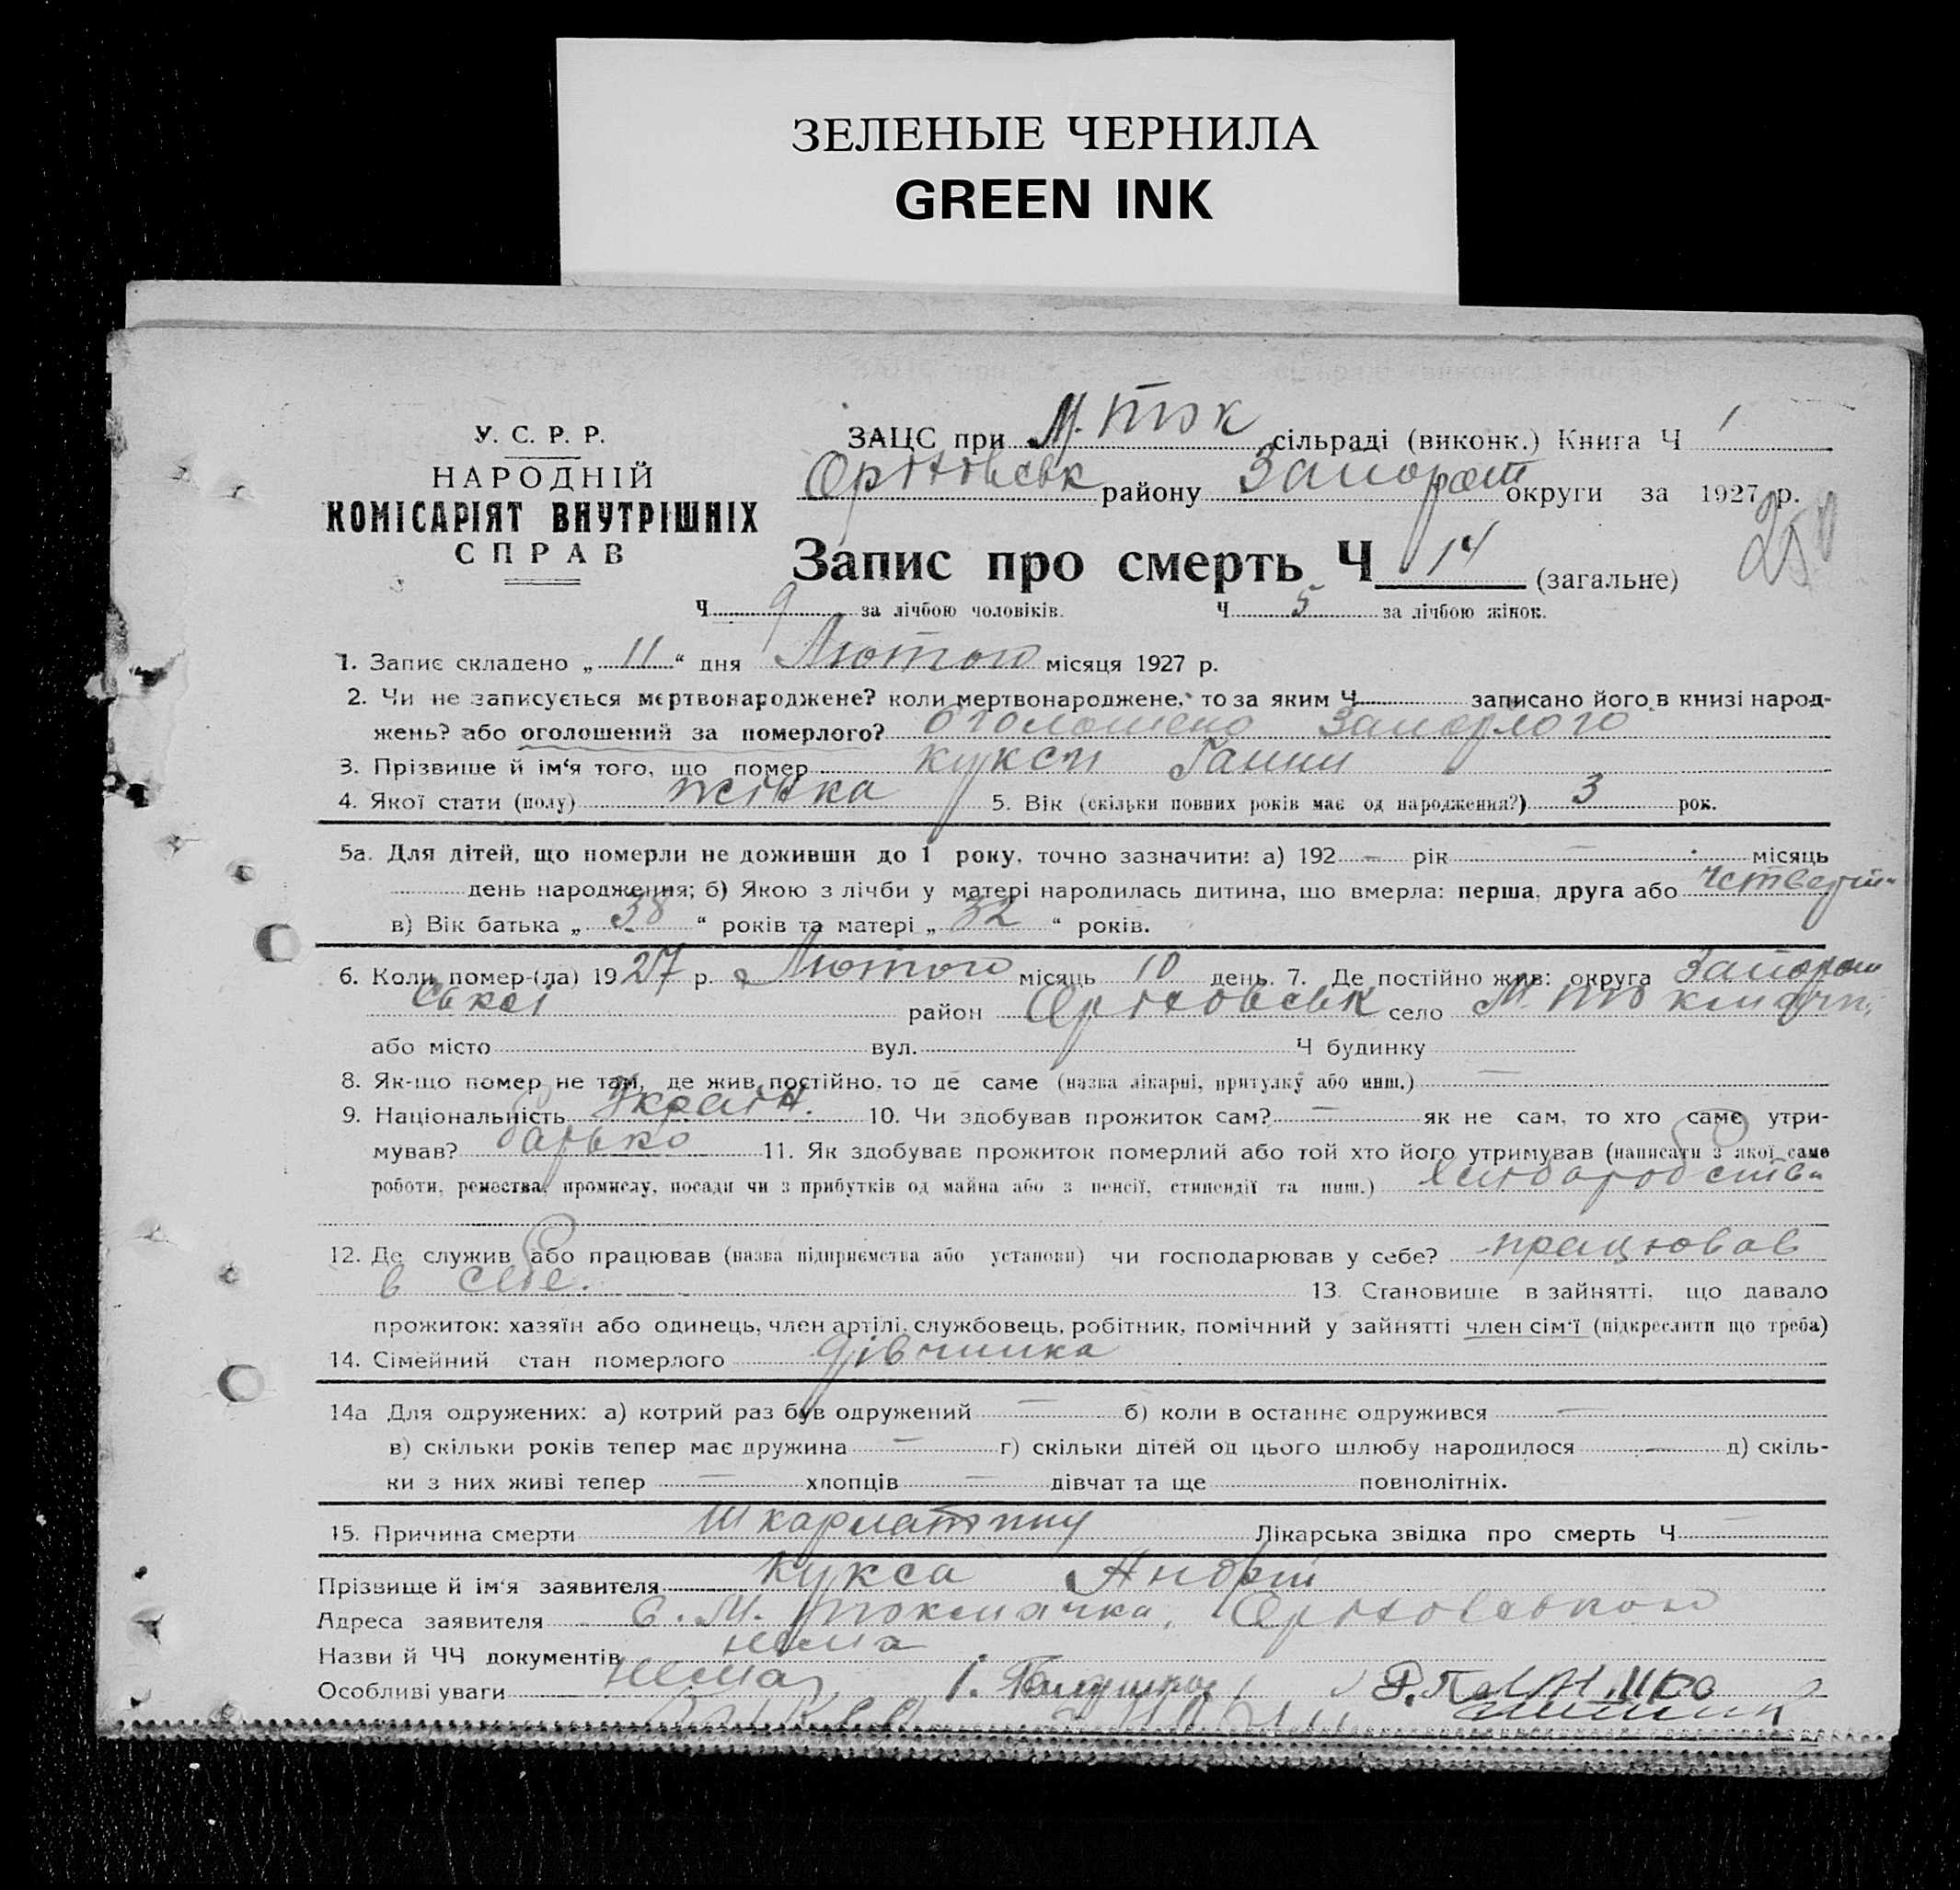 ЗЕЛЕНЫЕ ЧЕРНИЛА
GREEN INK
У. С. Р. Р.
НАРОДНІЙ
КОМІСАРІЯТ ВНУТРІШНІХ
СПРАВ
ЗАЦС при М. Ток сільраді (виконк.) Книга Ч 1
Оріховськ району Запорож округи за 1927 р.
Запис про смерть Ч 14 (загальне)
Ч 9 за лічбою чоловіків. Ч 5 за лічбою жінок.
1. Запис складено „ 11 “ дня Лютого місяця 1927 р.
2. Чи не записується мертвонароджене? коли мертвонароджене, то за яким Ч записано його в книзі народ-
жень? або оголошений за померлого? оголошено
3. Прізвище й ім‘я того, що помер Кукси Ганни
4. Якої стати (полу) жінка 5. Вік (скільки повних років має од народження?) 3 рок.
5а. Для дітей, що померли не доживши до 1 року, точно зазначити: а) 192 – рік – місяць
день народження; б) Якою з лічби у матері народилась дитина, що вмерла: перша, друга або
в) Вік батька „ 38 “ років та матері „ 32 “ років.
6. Коли помер-(ла) 1927 р. Лютого місяць 10 день. 7. Де постійно жив: округа Запорож
ської район Оріховськ село М. Токмачк
або місто вул. Ч будинку
8. Як-що помер не там, де жив постійно, то де саме (назва лікарні, притулку або инш.) –
9. Національність Україн. 10. Чи здобував прожиток сам? – як не сам, то хто саме утри-
мував? батько 11. Як здобував прожиток померлий або той хто його утримував (написати з якої саме
роботи, ремества, промислу, посади чи з прибутків од майна або з пенсії, стипендії та инш.)
12. Де служив або працював (назва підприємства або установи) чи господарював у себе? працював
в себе. 13. Становище в зайнятті, що давало
прожиток: хазяїн або одинець, член артілі, службовець, робітник, помічний у зайнятті член сім‘ї (підкреслити що треба)
14. Сімейний стан померлого дівчинка
14а Для одружених: а) котрий раз був одружений – б) коли в останнє одружився –
в) скільки років тепер має дружина – г) скільки дітей од цього шлюбу народилося – д) скіль-
ки з них живі тепер – хлопців – дівчат та ще повнолітніх.
15. Причина смерти шкарлатину Лікарська звідка про смерть Ч –
Прізвище й ім‘я заявителя Кукса Андрій
Адреса заявителя с. М. Токмачка,
Назви й ЧЧ документів нема
Особливі уваги нема